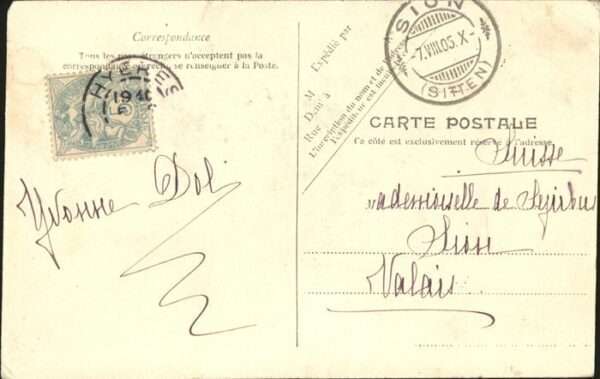 Correspondance
Tous les pays étrangers n'acceptent pas la
correspondance au recto, se renseigner à la Poste.
Yvonne Dol
Expédié par
M
Dem^t à
Rue
L'inscription du nom et de l'adresse
Expéditeur est facultative
SION
-7.VIII.05.X-
(SITTEN)
CARTE POSTALE
Ce côté est exclusivement réservé à l'adresse
Suisse
Mademoiselle de
Sion
Valais